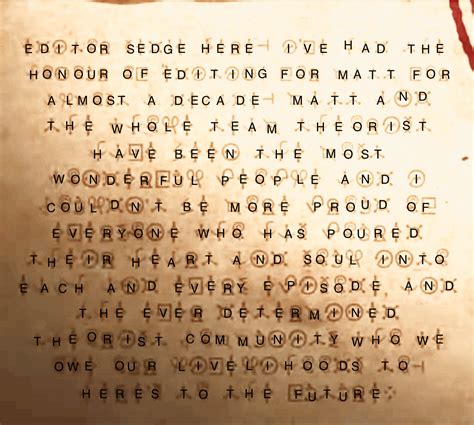 EDITOR SEDGE HERE IVE HAD THE
HONOUR OF EDITING FOR MATT FOR
ALMOST A DECADE MATT AND
THE WHOLE TEAM THEORIST
HAVE BEEN THE MOST
WONDERFUL PEOPLE AND I
COULDNT BE MORE PROUD OF
EVERYONE WHO HAS POURED
THEIR HEART AND SOUL INTO
EACH AND EVERY EPISODE AND
THE EVER DETERMINED
THEORIST COMMUNITY WHO WE
OWE OUR LIVELIHOODS TO
HERES TO THE FUTURE